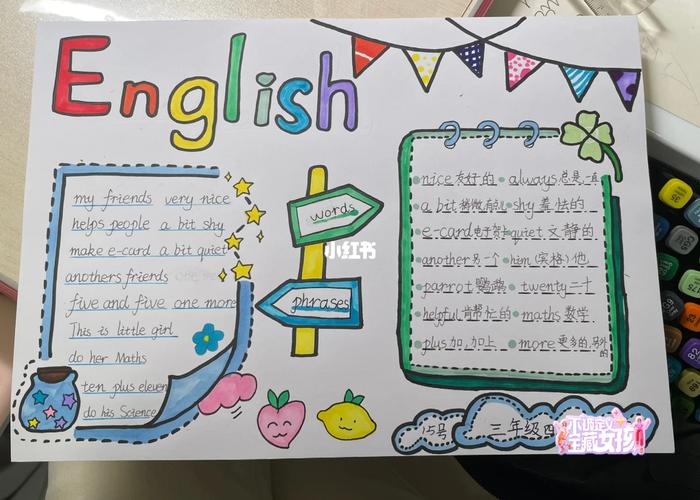 English
my friends very nice
helps people a bit shy
make e-card a bit quiet
anothers friends
five and five one more
This is little girl
do her Maths
ten plus eleven
do his Science
words
小红书
phrases
nice 友好的 always 总是,一直
a bit 稍微,有点 shy 羞怯的
e-card 电子贺卡 quiet 文静的
another 另一个 him (宾格)他
parrot 鹦鹉 twenty 二十
helpful 肯帮忙的 maths 数学
plus 加,加上 more 更多的,另外的
15号
三年级四
宝藏女孩